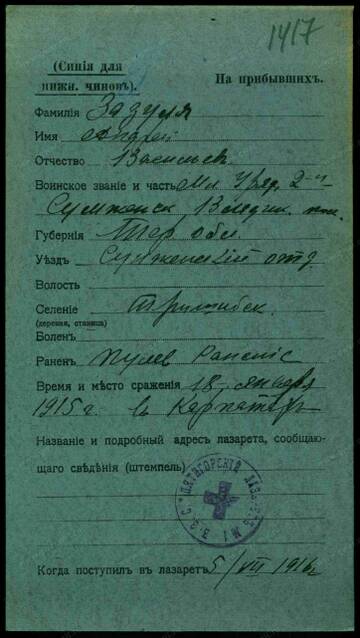 1417
(Синія для
нижн. чиновъ).
На прибывшихъ.
Фамилія Зазуля
Имя Андрей
Отчество Васильев.
Воинское званіе и часть Мл. Уряд. 2-й
Сунженск Владик. п.
Губернія Тер. обл.
Уѣздъ Сунженскій отд.
Волость
Селеніе
(деревня, станица)
Боленъ
Раненъ пулев
Время и мѣсто сраженія 18 января
1915 г в Карпатах
Названіе и подробный адресъ лазарета, сообщаю-
щаго свѣдѣнія (штемпель)
ПЯТИГОРСКІЙ ЛАЗАРЕТЪ № 1 В.З.С.
Когда поступил въ лазаретъ 5/VII 1916 г